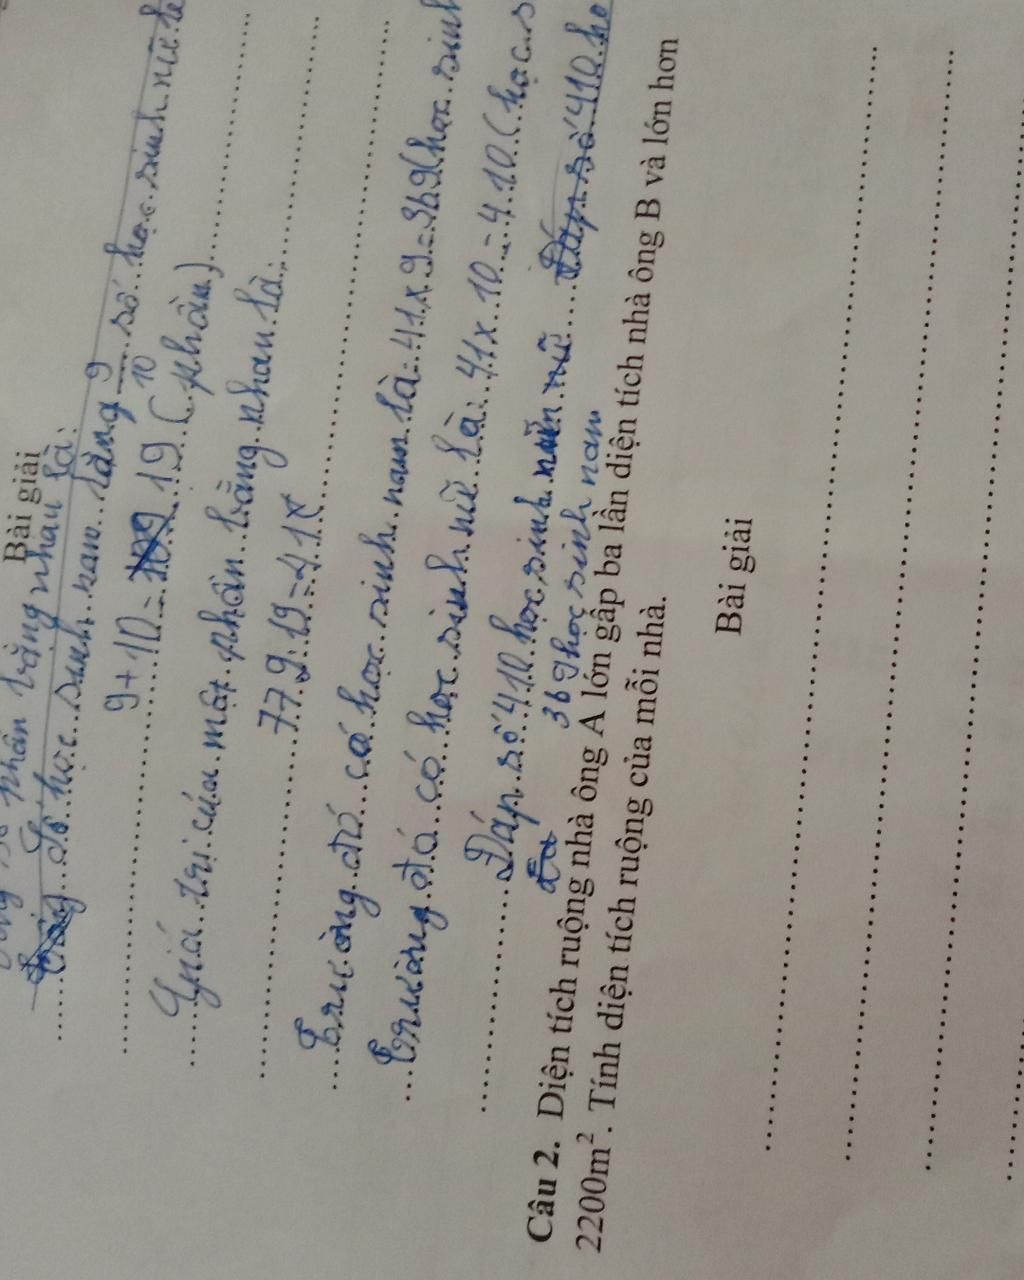 Bài giải
phần bằng nhau là:
Số học sinh nam bằng 9/10 số học sinh nữ
9 + 10 = 19 (phần)
Giá trị của một phần bằng nhau là:
779:19=41
Trường đó có học sinh nam là: 41 x 9 = 369 (học sinh
Trường đó có học sinh nữ là: 41 x 10 = 410 (học s
Đáp số 410 học sinh nữ Đáp số 410 họ
369 học sinh nam
Câu 2. Diện tích ruộng nhà ông A lớn gấp ba lần diện tích nhà ông B và lớn hơn
2200m². Tính diện tích ruộng của mỗi nhà.
Bài giải